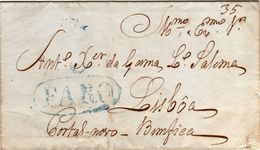 35
Illmo. Exmo. Sr.
Anto. Xer. da Gama Lo. Palema
FARO
Lisbôa
Portas-novo - Bemfica